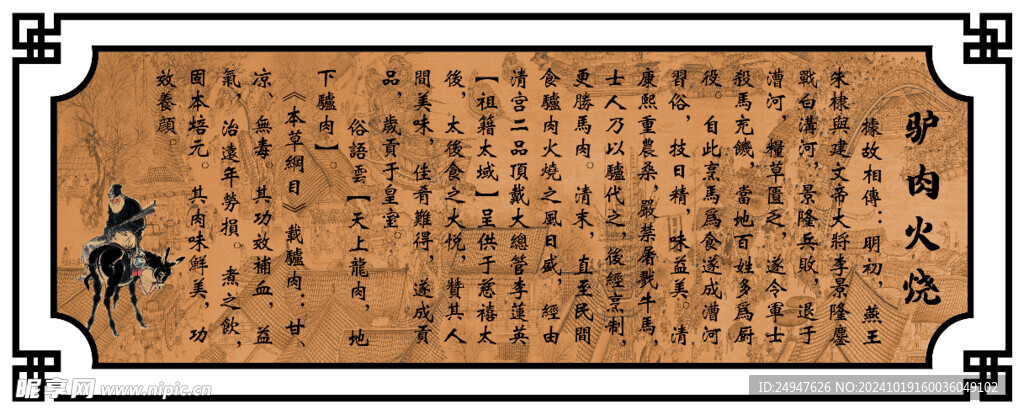 驴肉火烧
據故相傳：明初，燕王
朱棣與建文帝大將李景隆鏖
戰白溝河，景隆兵敗，退于
漕河，糧草匱乏，遂令軍士
殺馬充饑，當地百姓多爲厨
役。自此烹馬爲食遂成漕河
習俗，技日精，味益美。清
康熙重農桑，嚴禁屠戮牛馬，
士人乃以驢代之，後經烹制，
更勝馬肉。清末，直至民間
食驢肉火燒之風日盛，經由
清宫二品頂戴大總管李蓮英
【祖籍太域】呈供于慈禧太
後，太後食之大悦，贊其人
間美味，佳肴難得，遂成貢
品，歲貢于皇室。
俗語雲【天上龍肉，地
下驢肉】。
《本草綱目》載驢肉：甘、
凉、無毒。其功效補血，益
氣，治遠年勞損。煮之飲，
固本培元。其肉味鮮美，功
效養顔。
昵享网 www.nipic.cn
ID:24947626 NO:20241019160036049102